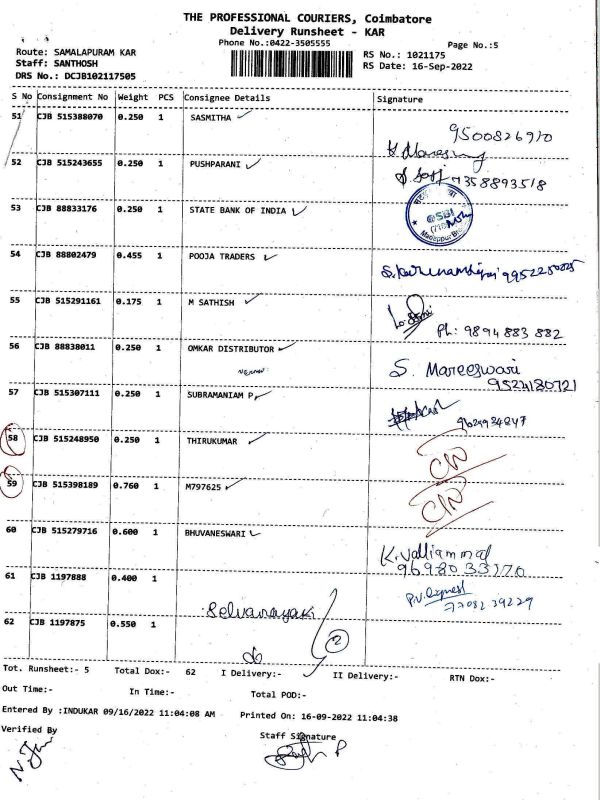 THE PROFESSIONAL COURIERS, Coimbatore
Delivery Runsheet - KAR
Phone No.:0422-3505555
Page No.:5
Route: SAMALAPURAM KAR
Staff: SANTHOSH
DRS No.: DCJB102117505
RS No.: 1021175
RS Date: 16-Sep-2022
S No Consignment No Weight PCS Consignee Details Signature
51 CJB 515388070 0.250 1 SASMITHA
9500826910
52 CJB 515243655 0.250 1 PUSHPARANI
7358893518
53 CJB 88833176 0.250 1 STATE BANK OF INDIA
SBI
54 CJB 88802479 0.455 1 POOJA TRADERS
55 CJB 515291161 0.175 1 M SATHISH
Ph: 9894 883 882
56 CJB 88838011 0.250 1 OMKAR DISTRIBUTOR
S. Mareeswari
9524180721
57 CJB 515307111 0.250 1 SUBRAMANIAM P
9629934847
58 CJB 515248950 0.250 1 THIRUKUMAR
59 CJB 515398189 0.760 1 M797625
60 CJB 515279716 0.600 1 BHUVANESWARI
K. Valliammal
9698033170
61 CJB 1197888 0.400 1
Selvanayaki
7708239229
62 CJB 1197875 0.550 1
do
2
Tot. Runsheet:- 5 Total Dox:- 62 I Delivery:- II Delivery:- RTN Dox:-
Out Time:- In Time:- Total POD:-
Entered By :INDUKAR 09/16/2022 11:04:08 AM Printed On: 16-09-2022 11:04:38
Verified By
Staff Signature